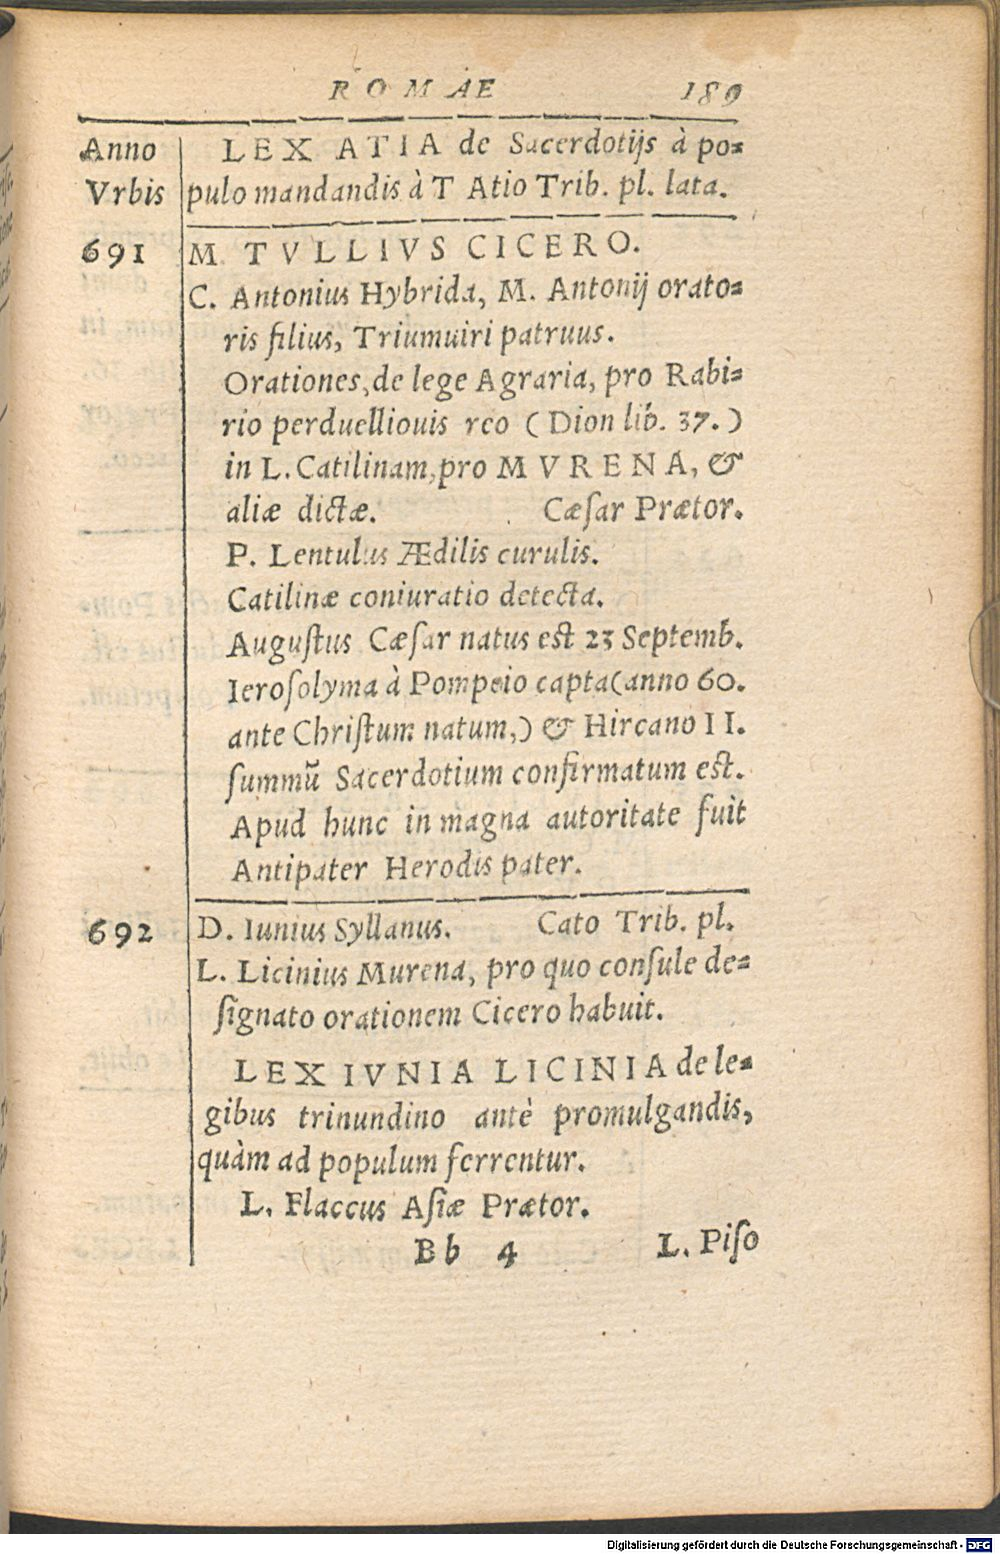 ROMAE 189
Anno LEX ATIA de Sacerdotijs à po=
Vrbis pulo mandandis à T Atio Trib. pl. lata.
691 M TVLLIVS CICERO.
C. Antonius Hybrida, M. Antonij orato=
ris filius, Triumuiri patruus.
Orationes, de lege Agraria, pro Rabi=
rio perduelliouis reo (Dion lib. 37.)
in L. Catilinam, pro MVRENA, &
aliæ dictæ. Cæſar Prætor.
P. Lentulus Ædilis curulis.
Catilinæ coniuratio detecta.
Auguſtus Cæſar natus est 23 Septemb.
Ieroſolyma à Pompeio capta (anno 60.
ante Chriſtum natum,) & Hircano II.
ſummũ Sacerdotium confirmatum est.
Apud hunc in magna autoritate fuit
Antipater Herodis pater.
692 D. Iunius Syllanus. Cato Trib. pl.
L. Licinius Murena, pro quo conſule de=
ſignato orationem Cicero habuit.
LEX IVNIA LICINIA de le=
gibus trinundino antè promulgandis,
quàm ad populum ferrentur.
L. Flaccus Aſiæ Prætor.
Bb 4 L. Piſo
Digitalisierung gefördert durch die Deutsche Forschungsgemeinschaft - DFG